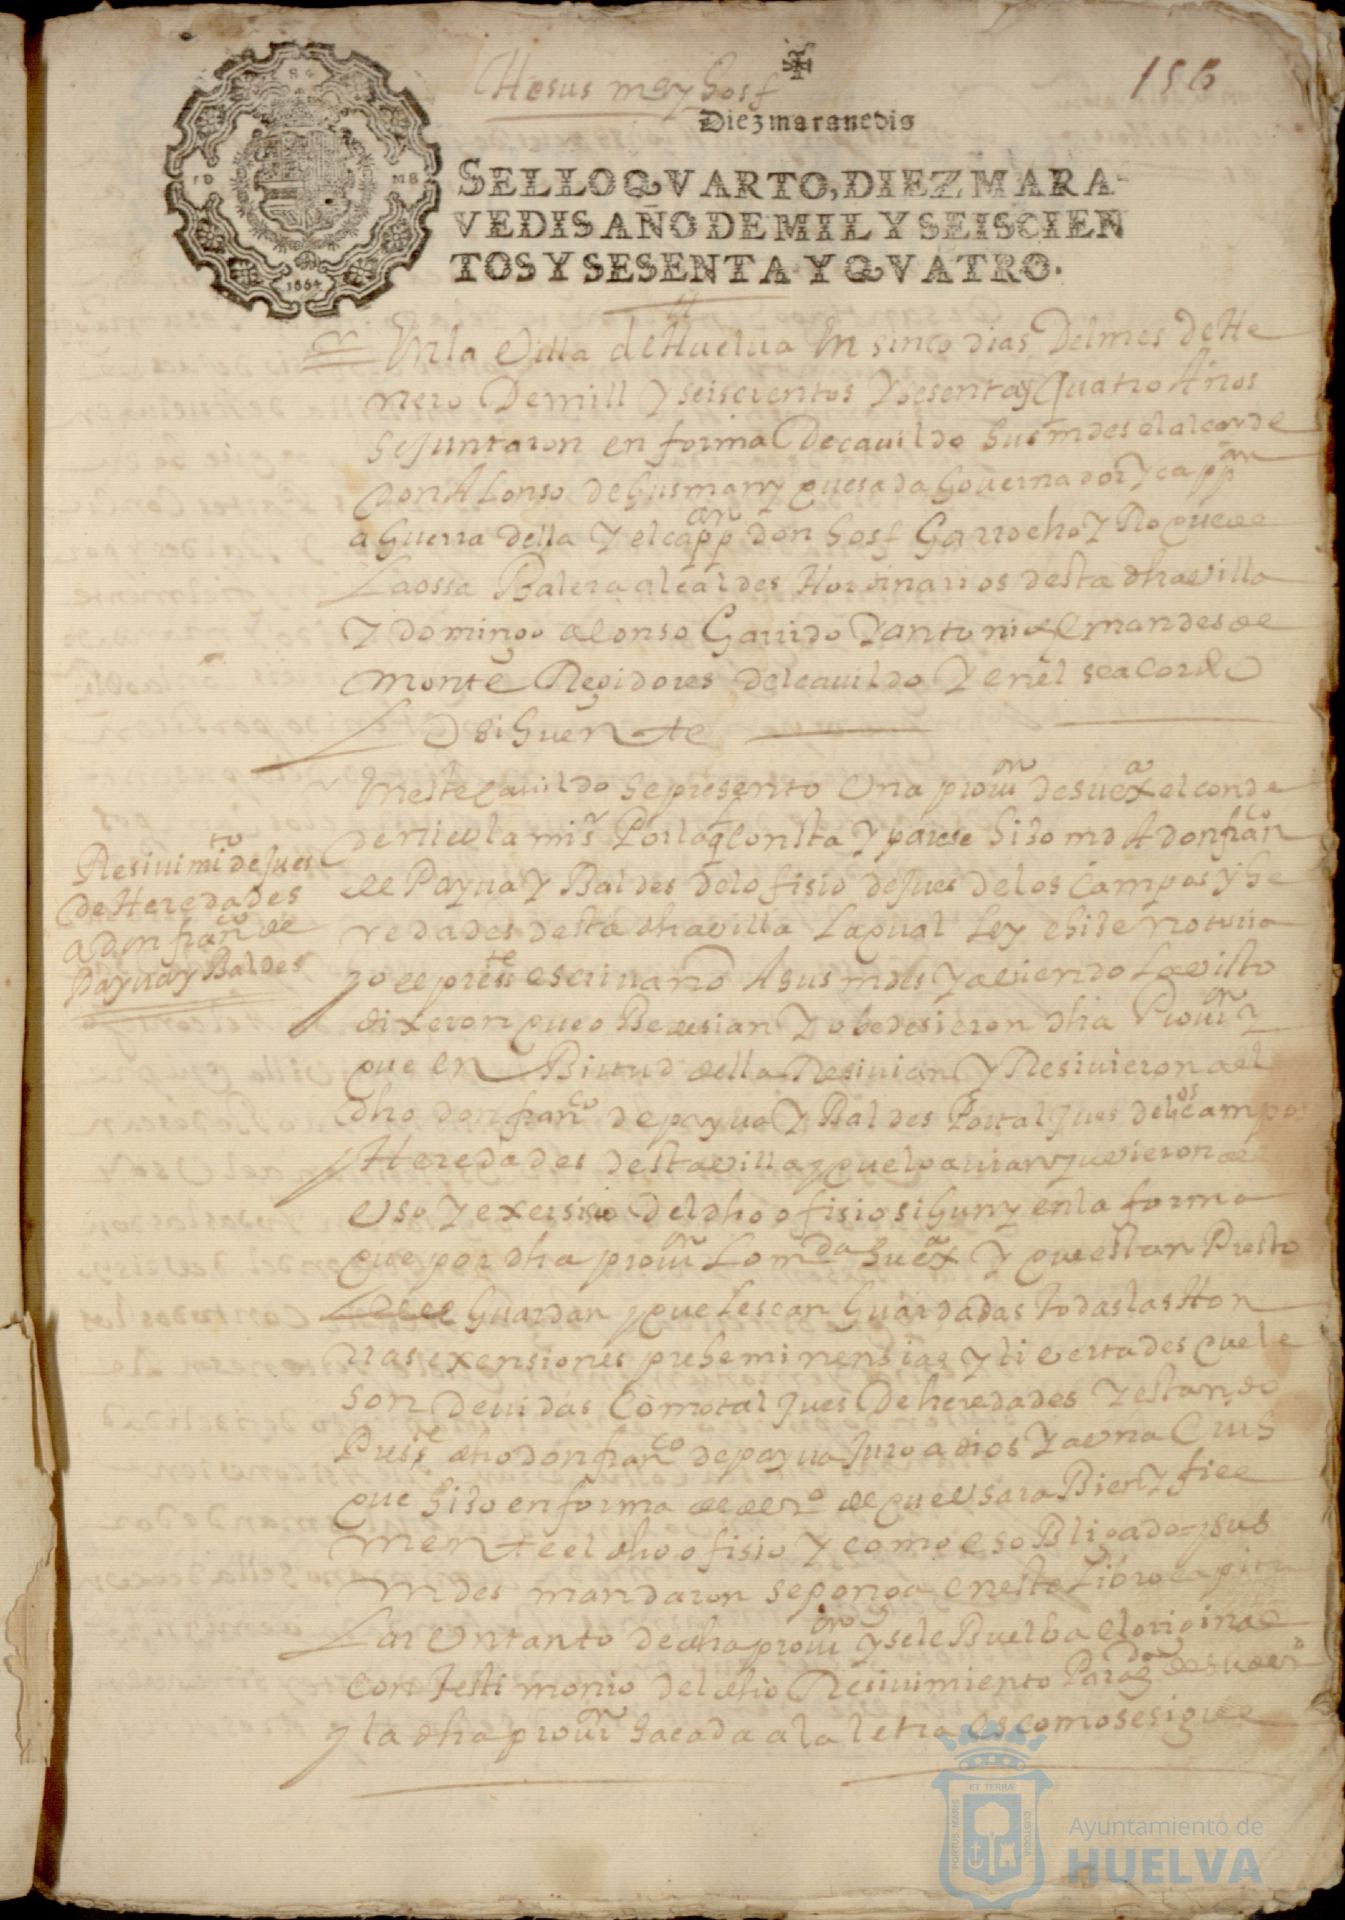 Hesus mª y Josf
156
Diez maravedis
SELLO QVARTO, DIEZ MARA-
VEDIS AÑO DE MIL Y SEISCIEN
TOS Y SESENTA Y QVATRO.
1664
En la Villa de Huelva En sinco dias Del mes de He
nero De mill y seiscientos y sesenta y quatro Años
se juntaron en forma De cavildo sus mdes el alcayde
don Alonso de Gusman y quesada Governador y cappan
a guerra della y el cappan don Josf Garrocho y Roque de
La ossa Balera alcaldes Hordinarios desta dha villa
y domingo alonso Garrido y antonio fernandes de
monte Regidores del cavildo y en el se acordo
Lo siguente
Resivimto de Jues
de Heredades
a don franco de
Payva y Baldes
En este cavildo se presento Una provon de su exa el conde
de niebla mi sr Por la q consta y parese hiso md A don franco
de Payva y Baldes del ofisio de Jues de los campos y he
redades desta dha villa La qual Ley e hise notoria
yo el preste escrivano A sus mdes y aviendo La visto
dixeron que o Bedesian y obedesieron dha Provon y
que en Birtud della Resivian y Resivieron a el
dho don franco de payva y Baldes Por tal Jues de los campos
y Heredades desta villa y que lo avian y uvieron al
uso y exersisio del dho ofisio sigun y en la forma
que por dha provon Lo mda su exa y que estan Presto
Guardar y que Le sean Guardadas todas las Hon
rras exensiones preheminensias y livertades que le
son devidas Como tal Jues De heredades y estando
Preste dho don franco de payva Juro a dios y a una Crus
que hiso en forma de dero de que usara Bien y fiel
mente el dho ofisio y como es oBligado y sus
mdes mandaron se ponga en este Libro capitu
Lar Un tanto de dha provon y se le Buelba el original
con testimonio del dho Resivimiento Para gda de su dero
y la dha provon sacada a la letra es como se sigue
PORTUS MARIS ET TERRÆ CUSTODIA
Ayuntamiento de
HUELVA